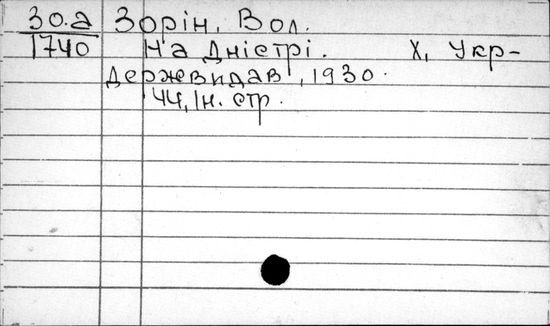 30.а Зорін, Вол.
1740 На Дністрі. Х, Укр-
держвидав, 1930.
44, Ін. стр.